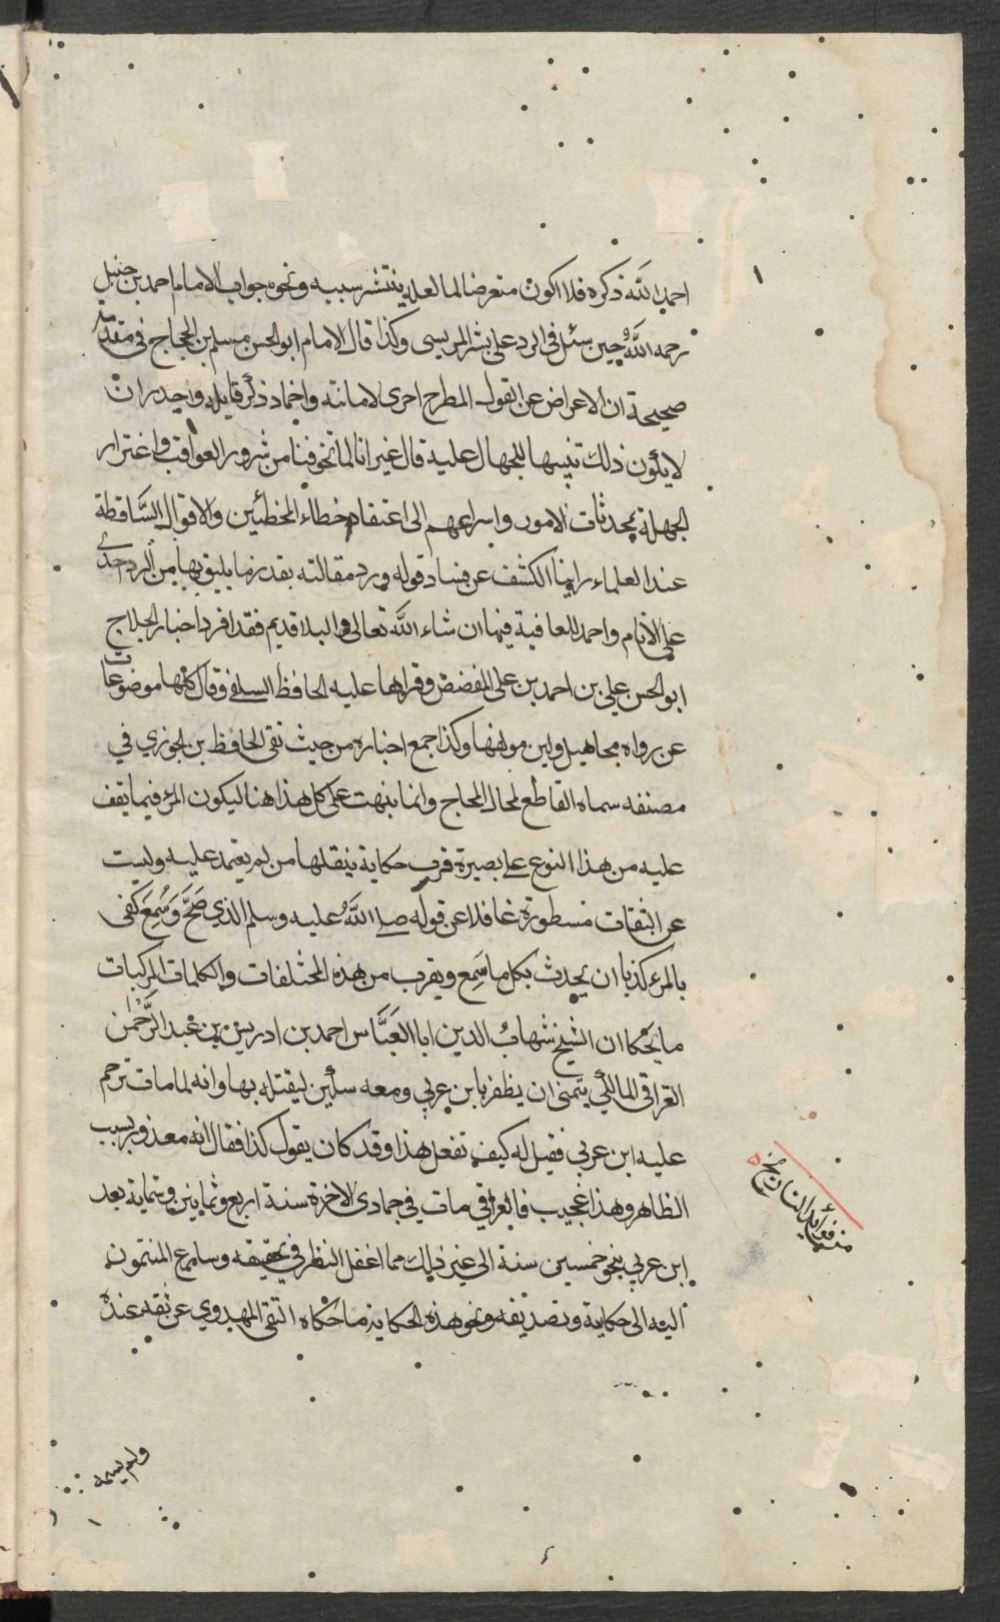 احمد الله ذكره فلا اكون متعرضا لما لعله ينتشر سببه ونحوه جواب الامام احمد بن حنبل
رحمه الله حين سئل في الرد على بشر المريسي وكذا قال الامام ابو الحسن مسلم بن الحجاج في مقدمة
صحيحه ان الاعراض عن القول المطرح احرى لاماتته واخماد ذكر قايله واجدر ان
لا يكون ذلك تنبيها للجهال عليه قال غير انا لما تخوفنا من شرور العواقب واغترار
الجهلة بمحدثات الامور واسراعهم الى اعتقاد خطاء المخطئين والاقوال السَّاقطة
عند العلماء راينا الكشف عن فساد قوله ورد مقالته بقدر ما يليق بها من الرد اجدى
على الانام واحمد للعافية فيها ان شاء الله تعالى والبلا قديم فقد افرد اخبار الحلاج
ابو الحسن علي بن احمد بن علي المفضض وقراها عليه الحافظ السلفي وقال كلها موضوعات
عن رواه مجاهيل ولين مولفها وكذا جمع اخباره من حيث نقى الحافظ بن الجوزي في
مصنفه سماه القاطع لمحال المحاج وانما نبهت على كل هذا هنا ليكون المرء فيما يقف
عليه من هذا النوع على بصيرة فرب حكاية ينقلها من لم يعتمد عليه وليست
عن الثقات مسطورة غافلا عن قوله صلى الله عليه وسلم الذي صَحَّ وَسُمِعَ كفى
بالمرء كذبا ان يحدث بكل ما سَمِع ويقرب من هذه المختلفات والكلمات المركبات
ما يحكا ان الشيخ شهابُ الدين ابا العَبَّاس احمد بن ادريس بن عبد الرَّحمٰن
القرافي المالكي يتمنى ان يظفر بابن عربي ومعه سكين ليقتله بها وانه لما مات ترحم
عليه ابن عربي فقيل له كيف تفعل هذا وقد كان يقول كذا فقال انه معذور بسبب
الظاهر وهذا عجيب فالقرافي مات في جمادى الاخرة سنة اربع وثمانين وستماية بعد
ابن عربي بنحو خمسين سنة الى غير ذلك مما اغفل النظر في تحقيقه وسارع المنتمون
اليه الى حكايته وتصديقه ونحو هذه الحكاية ما حكاه التقي المهدوي عن ثقة عنده
من فوائد التاريخ
ولم يسمه